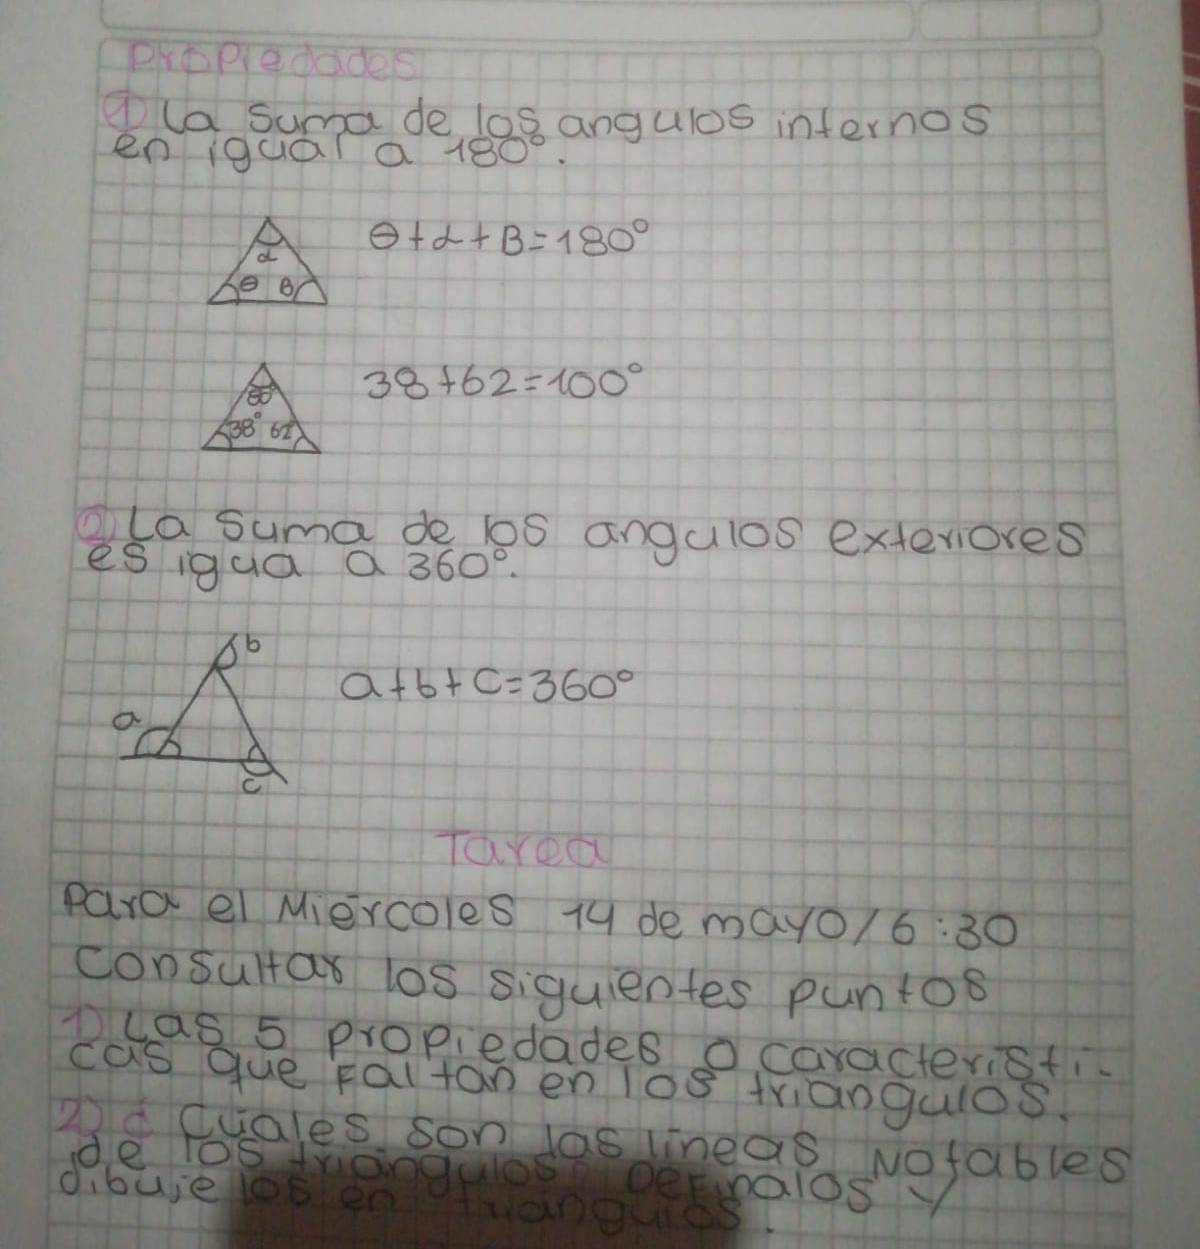 Propiedades
① La suma de los angulos internos
en igual a 180°.
α
θ B
θ+α+B=180°
80°
38° 62°
38+62=100°
② La suma de los angulos exteriores
es igua a 360°.
b
a
c
a+b+c=360°
Tarea
Para el Miércoles 14 de mayo/6:30
Consultar los siguientes puntos
1) Las 5 propiedades o caracteristi-
cas que Faltan en los triangulos.
2) ¿ Cuales son las lineas Notables
de los triangulos? Definalos y
dibuje los en triangulos.